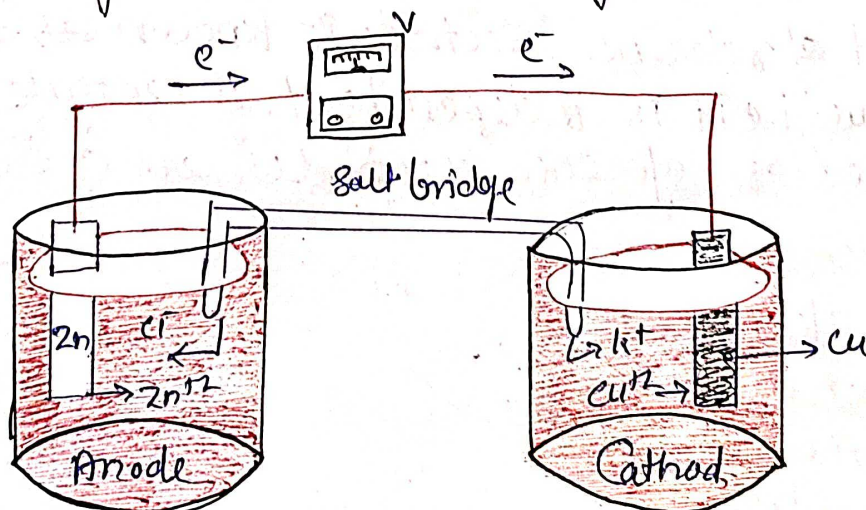 V
e⁻
e⁻
Salt bridge
Zn
Cl⁻
Zn⁺²
K⁺
Cu⁺²
Cu
Anode
Cathod